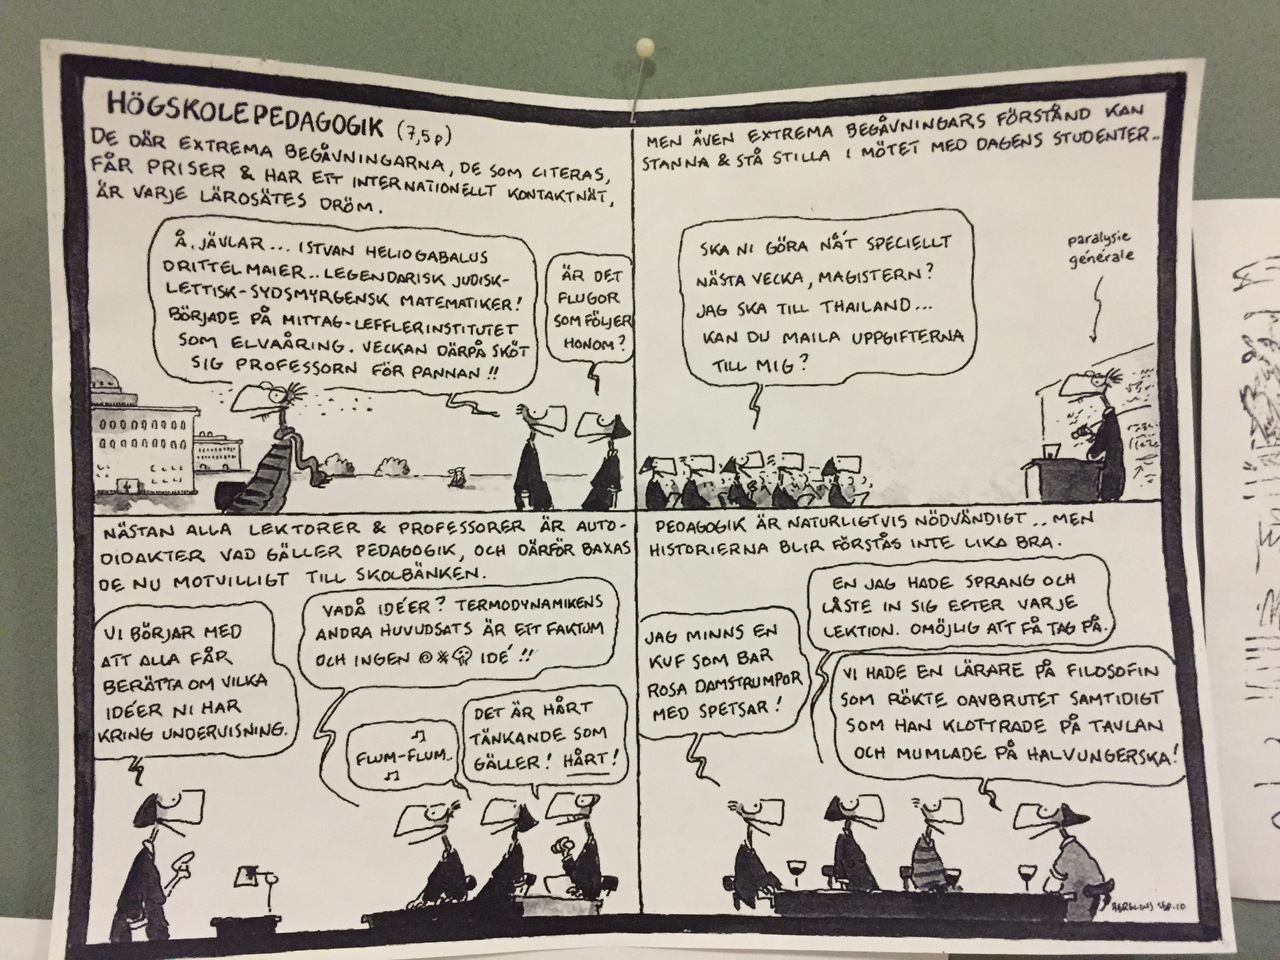 HÖGSKOLEPEDAGOGIK (7,5p)
DE DÄR EXTREMA BEGÅVNINGARNA, DE SOM CITERAS,
FÅR PRISER & HAR ETT INTERNATIONELLT KONTAKTNÄT,
ÄR VARJE LÄROSÄTES DRÖM.
Å, JÄVLAR... ISTVAN HELIOGABALUS
DRITTELMAIER.. LEGENDARISK JUDISK-
LETTISK-SYDSMYRGENSK MATEMATIKER!
BÖRJADE PÅ MITTAG-LEFFLERINSTITUTET
SOM ELVAÅRING. VECKAN DÄRPÅ SKÖT
SIG PROFESSORN FÖR PANNAN!!
ÄR DET
FLUGOR
SOM FÖLJER
HONOM?
MEN ÄVEN EXTREMA BEGÅVNINGARS FÖRSTÅND KAN
STANNA & STÅ STILLA I MÖTET MED DAGENS STUDENTER..
SKA NI GÖRA NÅ'T SPECIELLT
NÄSTA VECKA, MAGISTERN?
JAG SKA TILL THAILAND...
KAN DU MAILA UPPGIFTERNA
TILL MIG?
paralysie
générale
NÄSTAN ALLA LEKTORER & PROFESSORER ÄR AUTO-
DIDAKTER VAD GÄLLER PEDAGOGIK, OCH DÄRFÖR BAXAS
DE NU MOTVILLIGT TILL SKOLBÄNKEN.
VI BÖRJAR MED
ATT ALLA FÅR
BERÄTTA OM VILKA
IDÉER NI HAR
KRING UNDERVISNING.
VADÅ IDÉER? TERMODYNAMIKENS
ANDRA HUVUDSATS ÄR ETT FAKTUM
OCH INGEN IDÉ!!
FLUM-FLUM..
DET ÄR HÅRT
TÄNKANDE SOM
GÄLLER! HÅRT!
PEDAGOGIK ÄR NATURLIGTVIS NÖDVÄNDIGT.. MEN
HISTORIERNA BLIR FÖRSTÅS INTE LIKA BRA.
JAG MINNS EN
KUF SOM BAR
ROSA DAMSTRUMPOR
MED SPETSAR!
EN JAG HADE SPRANG OCH
LÅSTE IN SIG EFTER VARJE
LEKTION. OMÖJLIG ATT FÅ TAG PÅ.
VI HADE EN LÄRARE PÅ FILOSOFIN
SOM RÖKTE OAVBRUTET SAMTIDIGT
SOM HAN KLOTTRADE PÅ TAVLAN
OCH MUMLADE PÅ HALVUNGERSKA!
BERGLINS SEP.10